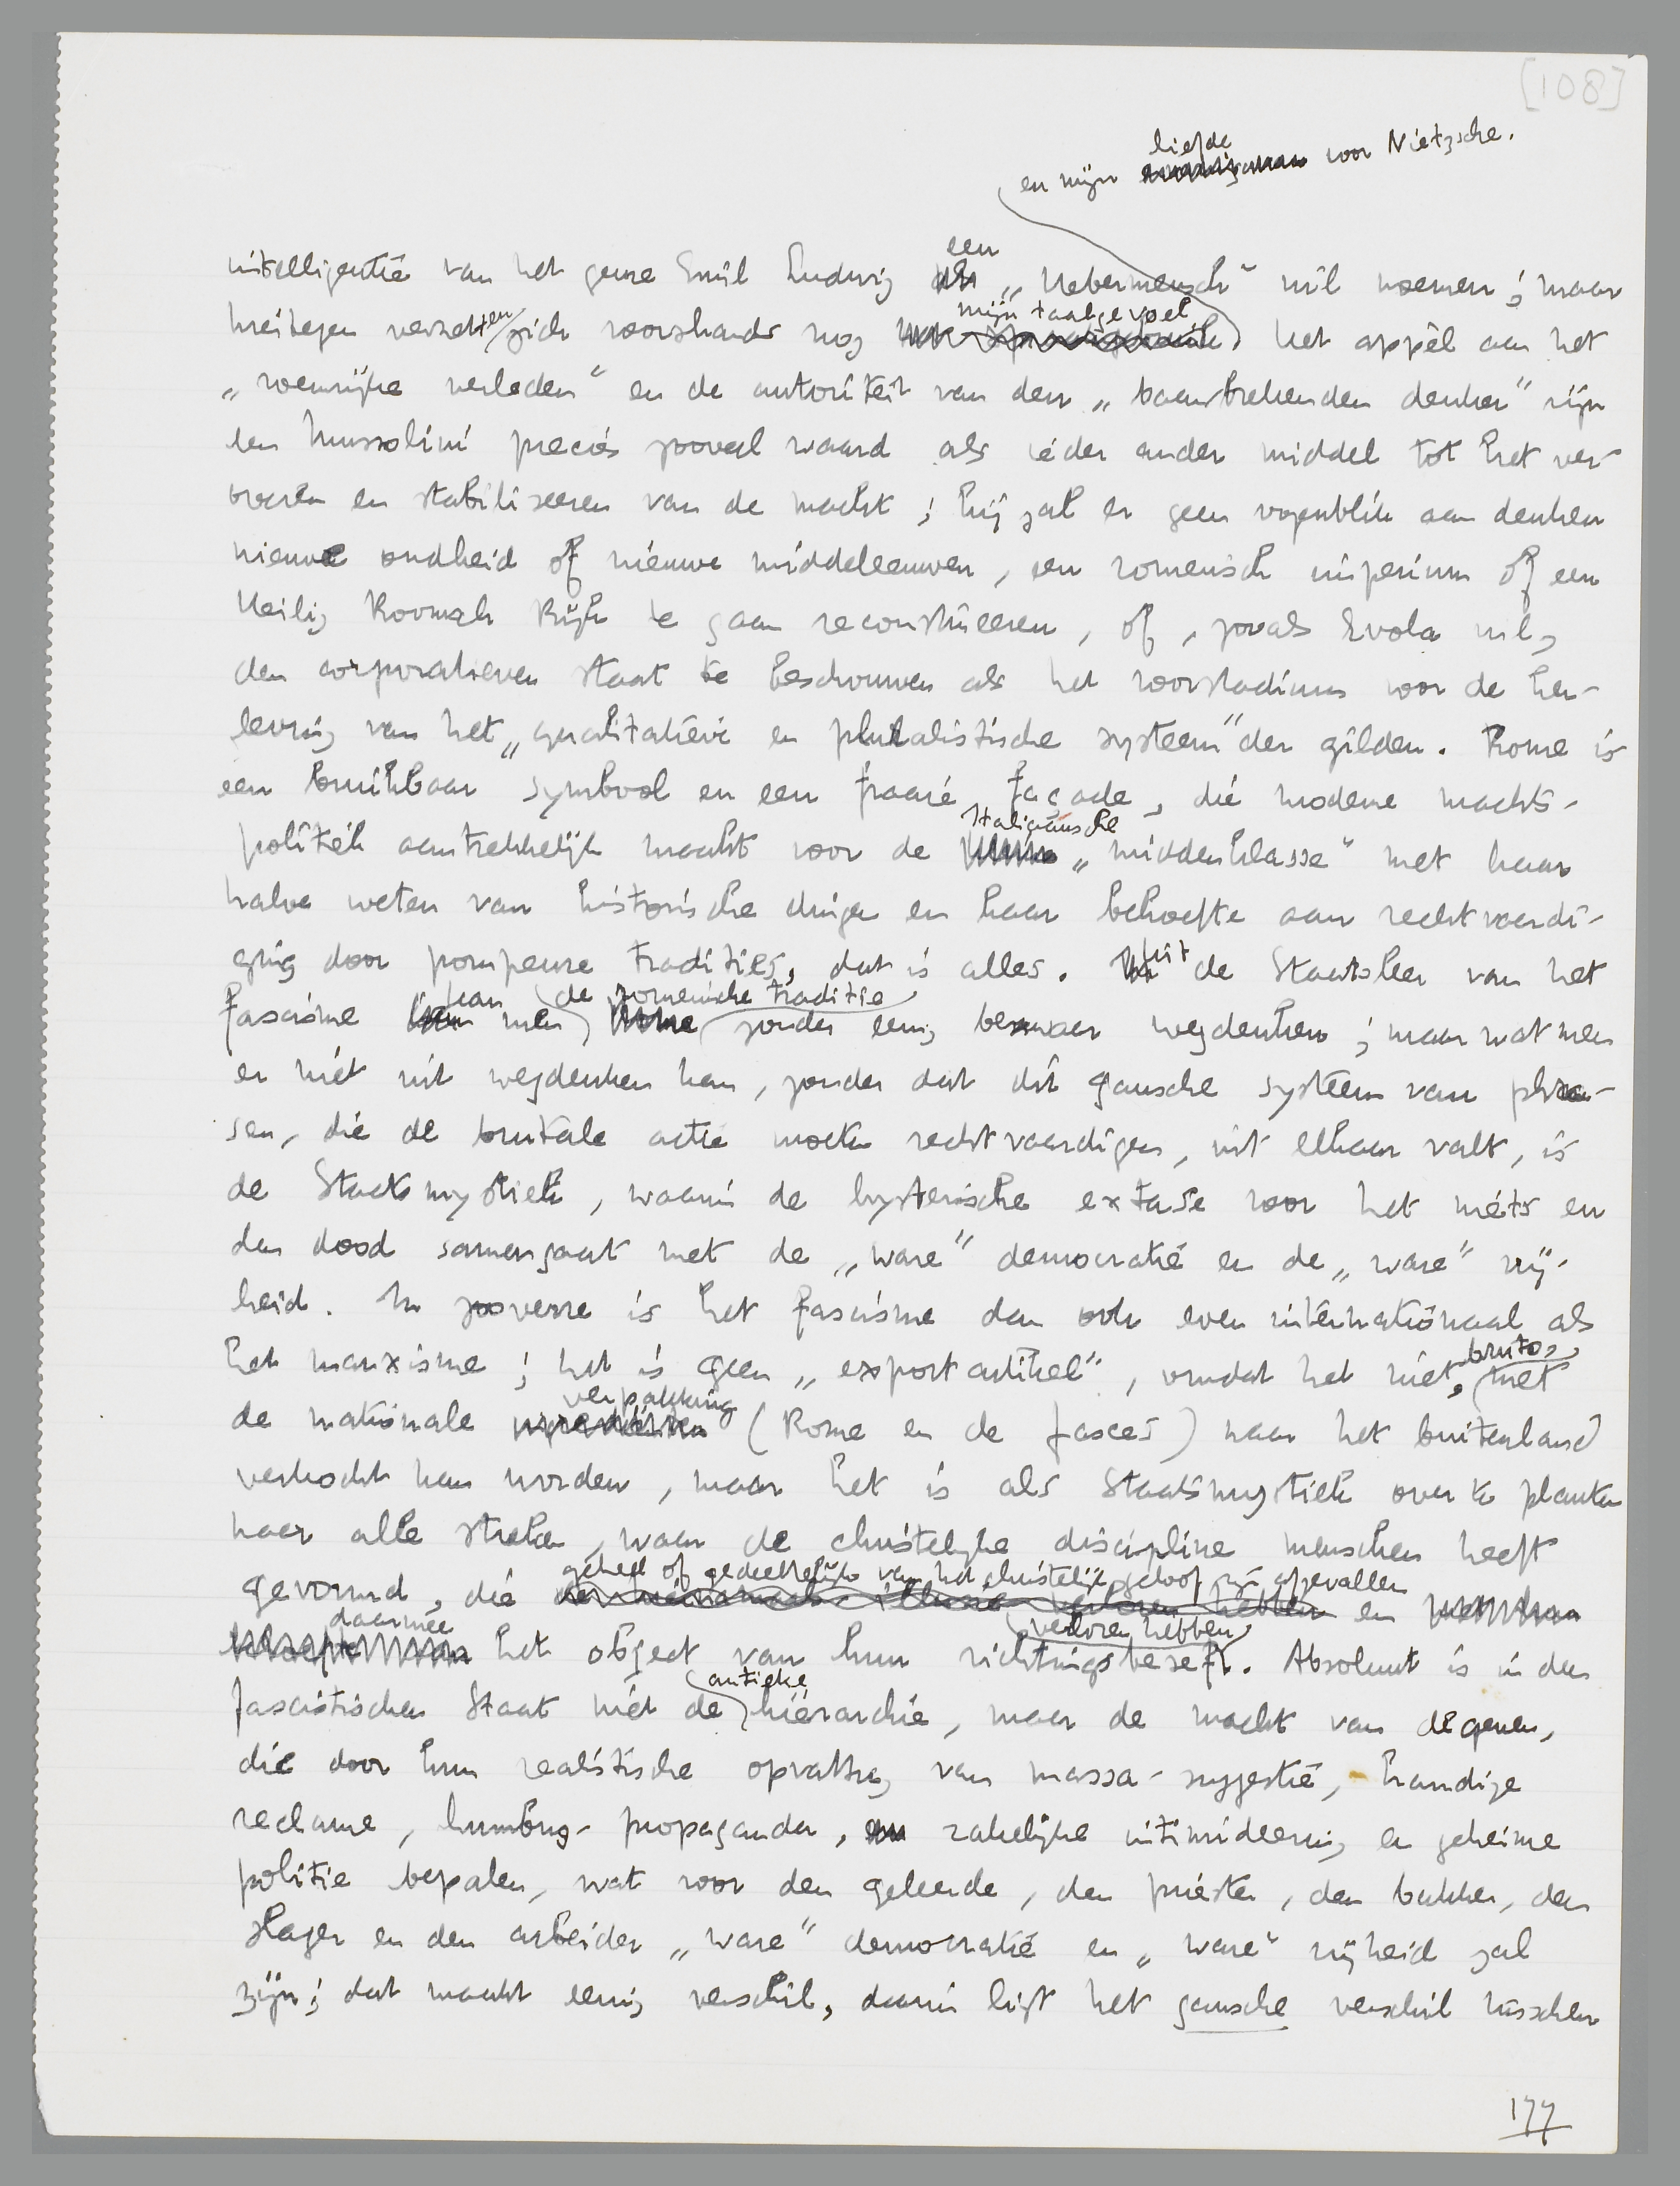 [108]
liefde
en mijn voor Nietzsche.
een
intelligentie van het genre Emil Ludwig „Uebermensch" wil noemen; maar
mijn taalgevoel
hiertegen verzetten zich voorshands nog het appèl aan het
„roemrijke verleden" en de autoriteit van den „baanbrekenden denker" zijn
een Mussolini precies zooveel waard als ieder ander middel tot het ver-
overen en stabiliseeren van de macht; hij zal er geen oogenblik aan denken
nieuwe oudheid of nieuwe middeleeuwen, een romeinsch imperium of een
Heilig Roomsch Rijk te gaan reconstrueeren, of, zooals Evola wil,
den corporatieven staat te beschouwen als het voorstadium voor de her-
leving van het „qualitatieve en pluralistische systeem" der gilden. Rome is
een bruikbaar symbool en een fraaie façade, die moderne machts-
Italiaansche
politiek aantrekkelijk maakt voor de „middenklasse" met haar
halve weten van historische dingen en haar behoefte aan rechtvaardi-
ging door pompeuze tradities, dat is alles. Uit de Staatsleer van het
kan de romeinsche traditie
fascisme men zonder eenig bezwaar wegdenken; maar wat men
er niet uit wegdenken kan, zonder dat dit gansche systeem van phra-
sen, die de brutale actie moeten rechtvaardigen, uit elkaar valt, is
de Staatsmystiek, waarin de hysterische extase voor het niets en
den dood samengaat met de „ware" democratie en de „ware" vrij-
heid. In zooverre is het fascisme dan ook even internationaal als
bruto,
het marxisme; het is geen „exportartikel", omdat het niet, met
verpakking
de nationale (Rome en de fasces) naar het buitenland
verkocht kan worden, maar het is als Staatsmystiek over te planten
naar alle streken, waar de christelijke discipline menschen heeft
geheel of gedeeltelijk van het christelijk geloof zijn afgevallen
gevormd, die en
daarmee verloren hebben
het object van hun richtingsbesef. Absoluut is in den
antieke
fascistischen Staat niet de hiërarchie, maar de macht van degenen,
die door hun realistische opvatting van massa-suggestie, handige
reclame, humbug-propaganda, zakelijke intimideering en geheime
politie bepalen, wat voor den geleerde, den priester, den bakker, den
slager en den arbeider „ware" democratie en „ware" vrijheid zal
zijn; dat maakt eenig verschil, daarin ligt het gansche verschil tusschen
177